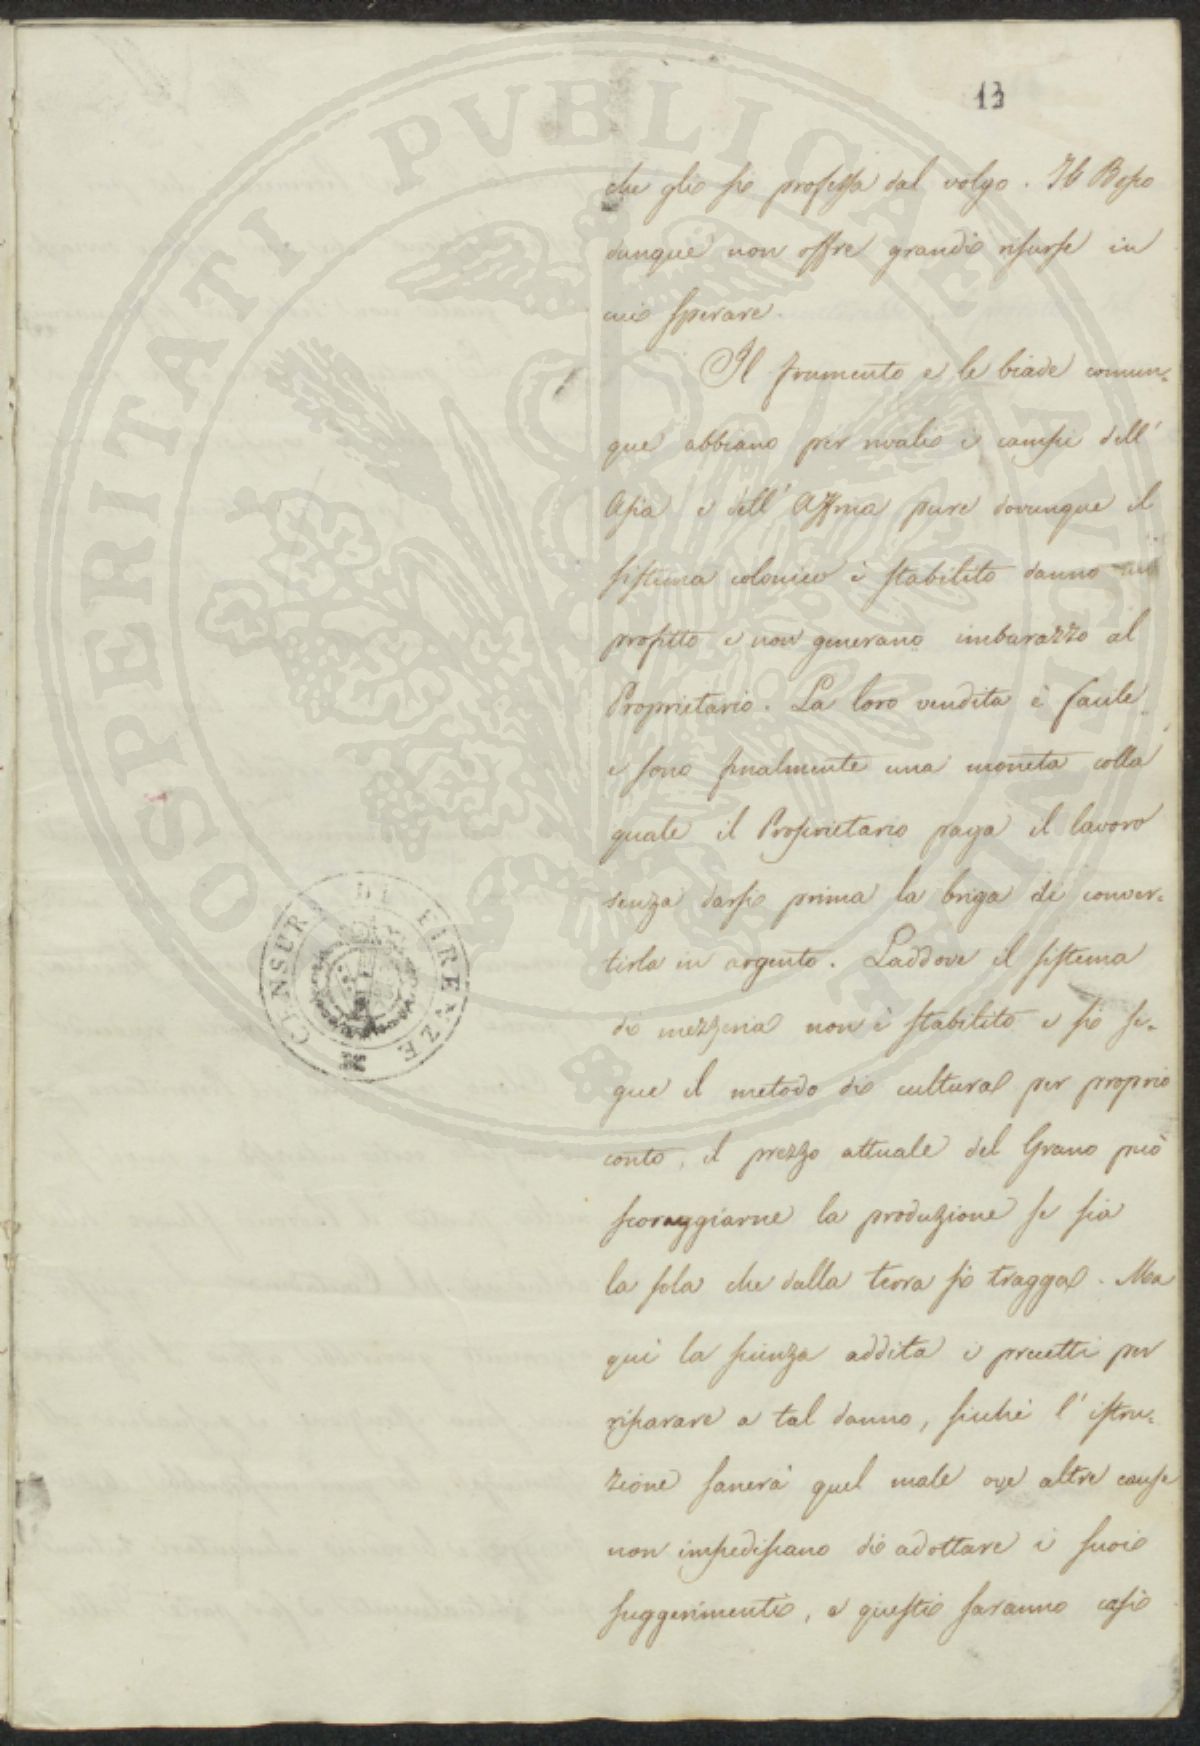 13
che gli si professa dal volgo. Il
dunque non offre grandi risorse in
cui sperare.
Il frumento e le biade comun-
que abbiano per rivali i campi dell'
Asia e dell' Affrica pure dovunque il
sistema colonico è stabilito danno un
profitto e non generano imbarazzo al
Proprietario. La loro vendita è facile
e sono finalmente una moneta colla
quale il Proprietario paga il lavoro
senza darsi prima la briga di conver-
tirla in argento. Laddove il sistema
di mezzeria non è stabilito e si se-
gue il metodo di cultura per proprio
conto, il prezzo attuale del Grano può
scoraggiarne la produzione se sia
la sola che dalla terra si tragga. Ma
qui la scienza addita i precetti per
riparare a tal danno, sicchè l' istru-
zione sanerà quel male ove altre cause
non impediscano di adottare i suoi
suggerimenti, e questi saranno casi
CENSURA DI FIRENZE
PROSPERITATI PVBLICAE AVGENDAE